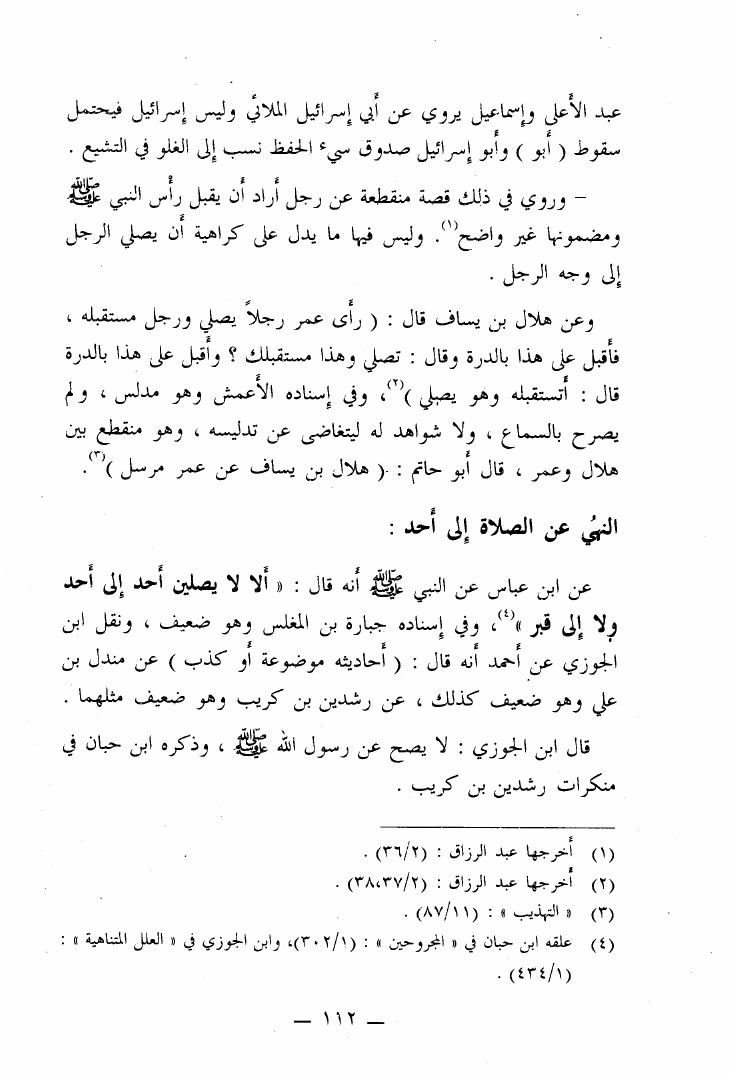 عبد الأعلى وإسماعيل يروي عن أبي إسرائيل الملائي وليس إسرائيل فيحتمل
سقوط ( أبو ) وأبو إسرائيل صدوق سيء الحفظ نسب إلى الغلو في التشيع .
– وروي في ذلك قصة منقطعة عن رجل أراد أن يقبل رأس النبي ﷺ
ومضمونها غير واضح(١). وليس فيها ما يدل على كراهية أن يصلي الرجل
إلى وجه الرجل .
وعن هلال بن يساف قال : ( رأى عمر رجلاً يصلي ورجل مستقبله ،
فأقبل على هذا بالدرة وقال : تصلي وهذا مستقبلك ؟ وأقبل على هذا بالدرة
قال : أتستقبله وهو يصلي )(٢)، وفي إسناده الأعمش وهو مدلس ، ولم
يصرح بالسماع ، ولا شواهد له ليتغاضى عن تدليسه ، وهو منقطع بين
هلال وعمر ، قال أبو حاتم : ( هلال بن يساف عن عمر مرسل )(٣).
النهي عن الصلاة إلى أحد :
عن ابن عباس عن النبي ﷺ أنه قال : « ألا لا يصلين أحد إلى أحد
ولا إلى قبر »(٤)، وفي إسناده جبارة بن المغلس وهو ضعيف ، ونقل ابن
الجوزي عن أحمد أنه قال : ( أحاديثه موضوعة أو كذب ) عن مندل بن
علي وهو ضعيف كذلك ، عن رشدين بن كريب وهو ضعيف مثلهما .
قال ابن الجوزي : لا يصح عن رسول الله ﷺ ، وذكره ابن حبان في
منكرات رشدين بن كريب .
(١) أخرجها عبد الرزاق : (٣٦/٢) .
(٢) أخرجها عبد الرزاق : (٣٨،٣٧/٢) .
(٣) « التهذيب » : (٨٧/١١) .
(٤) علقه ابن حبان في « المجروحين » : (٣٠٢/١)، وابن الجوزي في « العلل المتناهية » :
(٤٣٤/١) .
— ١١٢ —